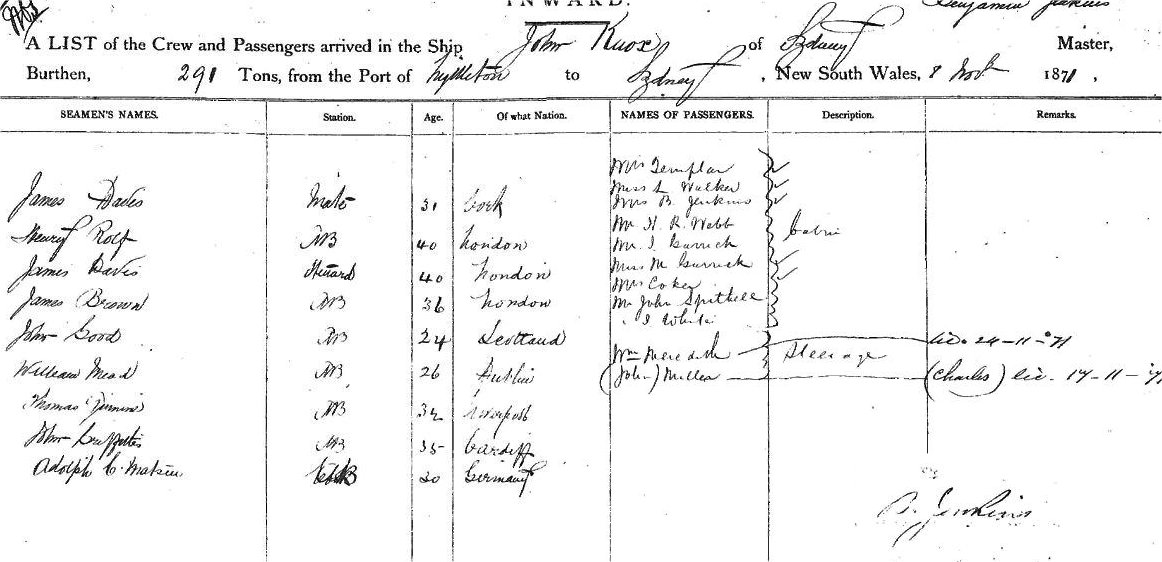 INWARD.
Benjamin Jenkins
A LIST of the Crew and Passengers arrived in the Ship John Knox of Sydney Master,
Burthen, 291 Tons, from the Port of Lyttleton to Sydney, New South Wales, 8 Novr 1871,
SEAMEN'S NAMES. Station. Age. Of what Nation. NAMES OF PASSENGERS. Description. Remarks.
Mrs Templar
Miss L Walker
James Davis Mate 31 Cork Mrs B. Jenkins
Mr H. R. Webb Cabin
Henry Rolf AB 40 London Mr J. Garrick
Miss M Garrick
James Davis Steward 40 London Mrs Coker
James Brown AB 36 London Mr John Spithell
" J White
John Good AB 24 Scotland lic. 24-11-71
Wm Meredith Steerage
William Mead AB 26 Dublin (John) Miller (Charles) lic. 17-11-71
Thomas AB 32 Liverpool
John Griffiths AB 35 Cardiff
Adolph C. 30 Germany
B. Jenkins